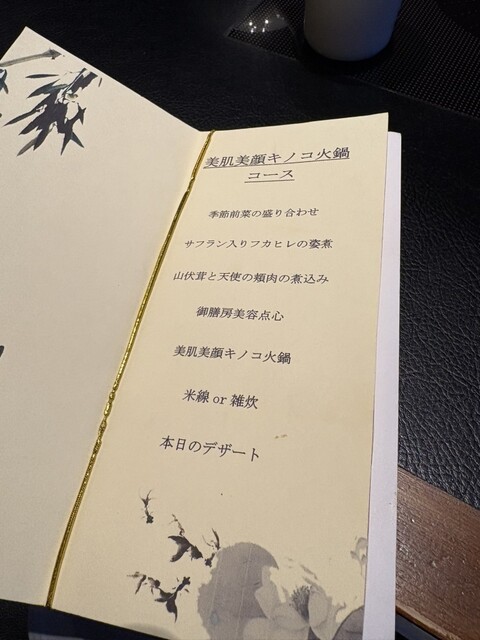 美肌美顔キノコ火鍋
コース
季節前菜の盛り合わせ
サフラン入りフカヒレの姿煮
山伏茸と天使の頬肉の煮込み
御膳房美容点心
美肌美顔キノコ火鍋
米線 or 雑炊
本日のデザート